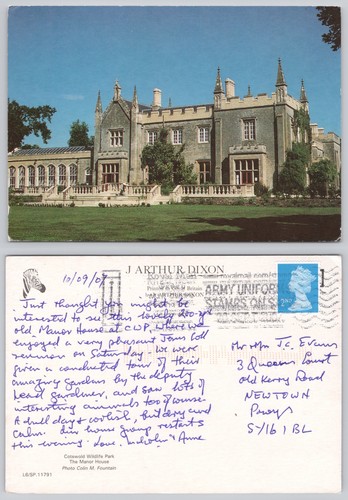 10/09/07
J. ARTHUR DIXON
Just thought you might be
interested to see this lovely 200 yr
old Manor House at CWP, where we
enjoyed a very pleasant
reunion on Saturday. We were
given a conducted tour of their
amazing gardens by the deputy
head gardener, and saw lots of
interesting animals too of course.
A dull day & coolish, but dry and
calm. Our house group restarts
this evening. Love, Malcolm & Anne
Printed in Great Britain
ARMY UNIFORM
STAMPS ON S
2nd
Mr & Mrs J.C. Evans
3 Queens Court
Old Kerry Road
NEWTOWN
Powys
SY16 1BL
Cotswold Wildlife Park
The Manor House
Photo Colin M. Fountain
L6/SP.11791